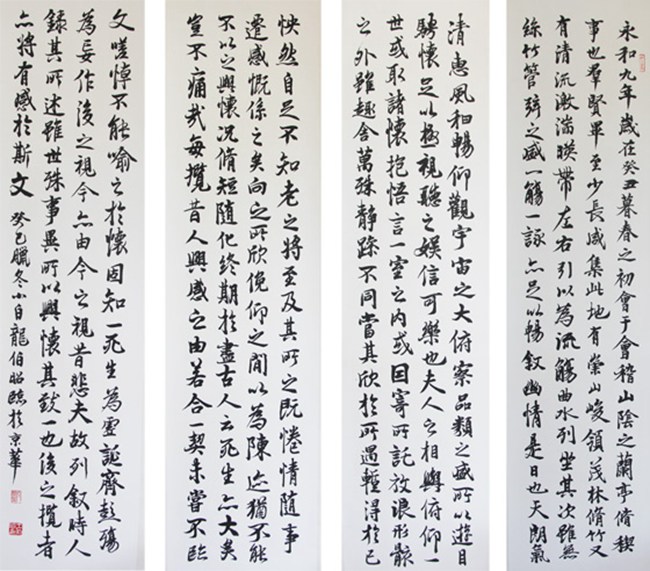 永和九年歲在癸丑暮春之初會于會稽山陰之蘭亭脩稧
事也羣賢畢至少長咸集此地有崇山峻領茂林脩竹又
有清流激湍暎帶左右引以為流觴曲水列坐其次雖無
絲竹管弦之盛一觴一詠亦足以暢敘幽情是日也天朗氣
清惠風和暢仰觀宇宙之大俯察品類之盛所以遊目
騁懷足以極視聽之娛信可樂也夫人之相與俯仰一
世或取諸懷抱悟言一室之內或因寄所託放浪形骸
之外雖趣舍萬殊靜躁不同當其欣於所遇蹔得於己
怏然自足不知老之將至及其所之既惓情隨事
遷感慨係之矣向之所欣俛仰之閒以為陳迹猶不能
不以之興懷況脩短隨化終期於盡古人云死生亦大矣
豈不痛哉每攬昔人興感之由若合一契未嘗不臨
文嗟悼不能喻之於懷固知一死生為虛誕齊彭殤
為妄作後之視今亦由今之視昔悲夫故列敘時人
錄其所述雖世殊事異所以興懷其致一也後之攬者
亦將有感於斯文 癸巳臘冬小白龍伯昭臨於京華